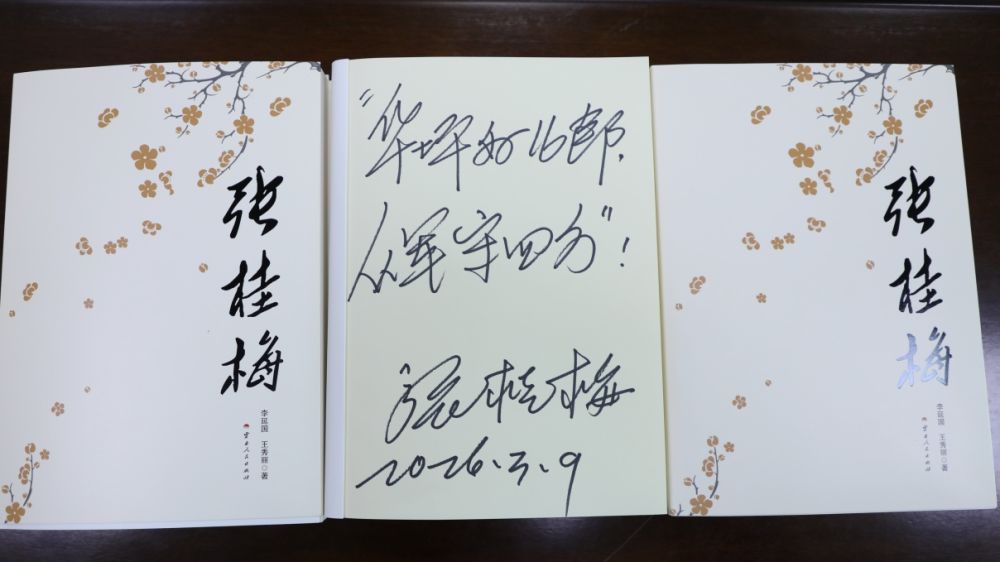 张桂梅
李延国 王秀丽 著
云南人民出版社
“华坪好儿郎，
从军守四方”！
张桂梅
2026.3.9
张桂梅
李延国 王秀丽 著
云南人民出版社